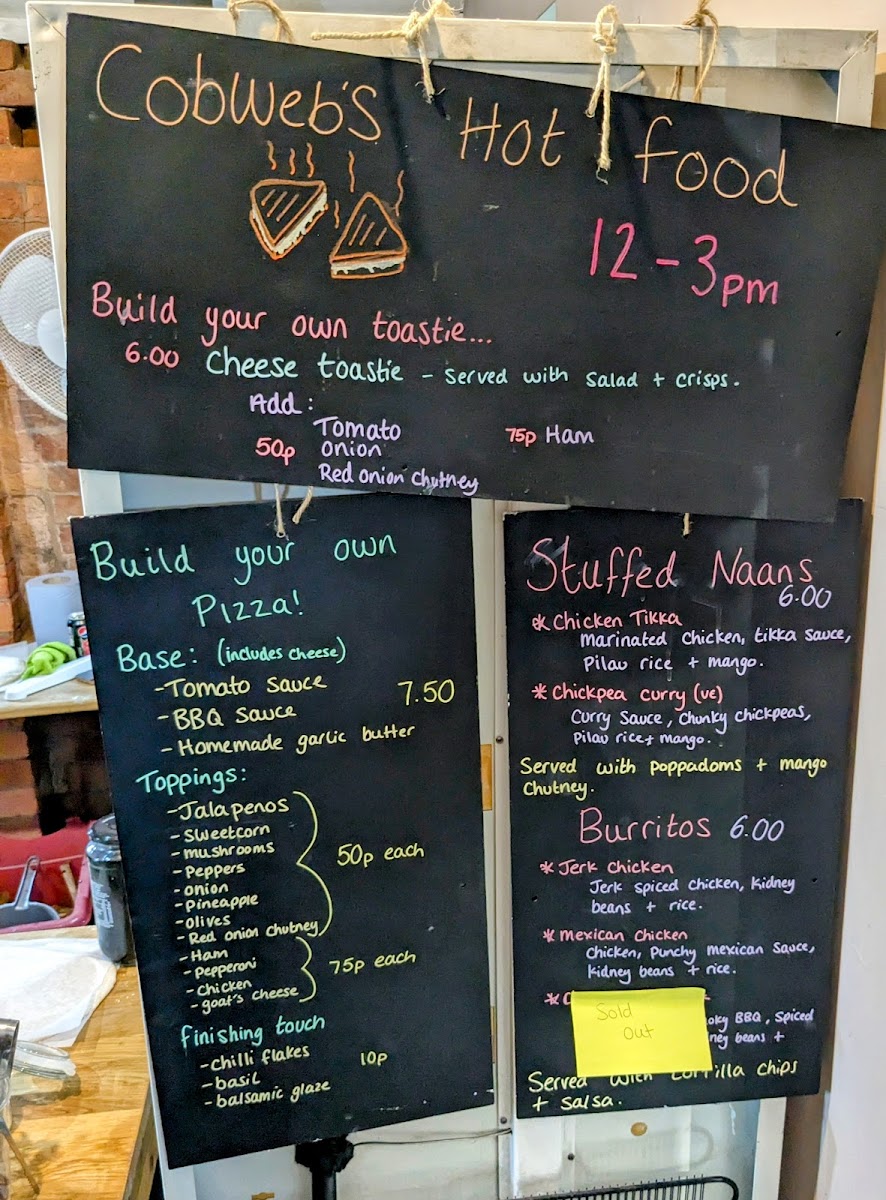 Cobweb's Hot food
12-3pm
Build your own toastie...
6.00 Cheese toastie - Served with salad + crisps.
Add:
50p
Tomato
onion
Red onion chutney
75p Ham
Build your own
Pizza!
Base: (includes cheese)
-Tomato sauce
-BBQ sauce
- Homemade garlic butter
7.50
Toppings:
-Jalapenos
- Sweetcorn
- mushrooms
- Peppers
- onion
- Pineapple
- olives
- Red onion chutney
50p each
- Ham
- Pepperoni
- Chicken
- goat's cheese
75p each
finishing touch
-chilli flakes
- basil
- balsamic glaze
10p
Stuffed Naans
6.00
* Chicken Tikka
marinated chicken, tikka sauce,
Pilau rice + mango.
* Chickpea curry (ve)
Curry Sauce, Chunky chickpeas,
Pilau rice + mango.
Served with poppadoms + mango
Chutney.
Burritos 6.00
* Jerk chicken
Jerk spiced chicken, kidney
beans + rice.
* mexican chicken
Chicken, Punchy mexican sauce,
kidney beans + rice.
*
Sold
out
BBQ, spiced
beans +
Served with tortilla chips
+ salsa.